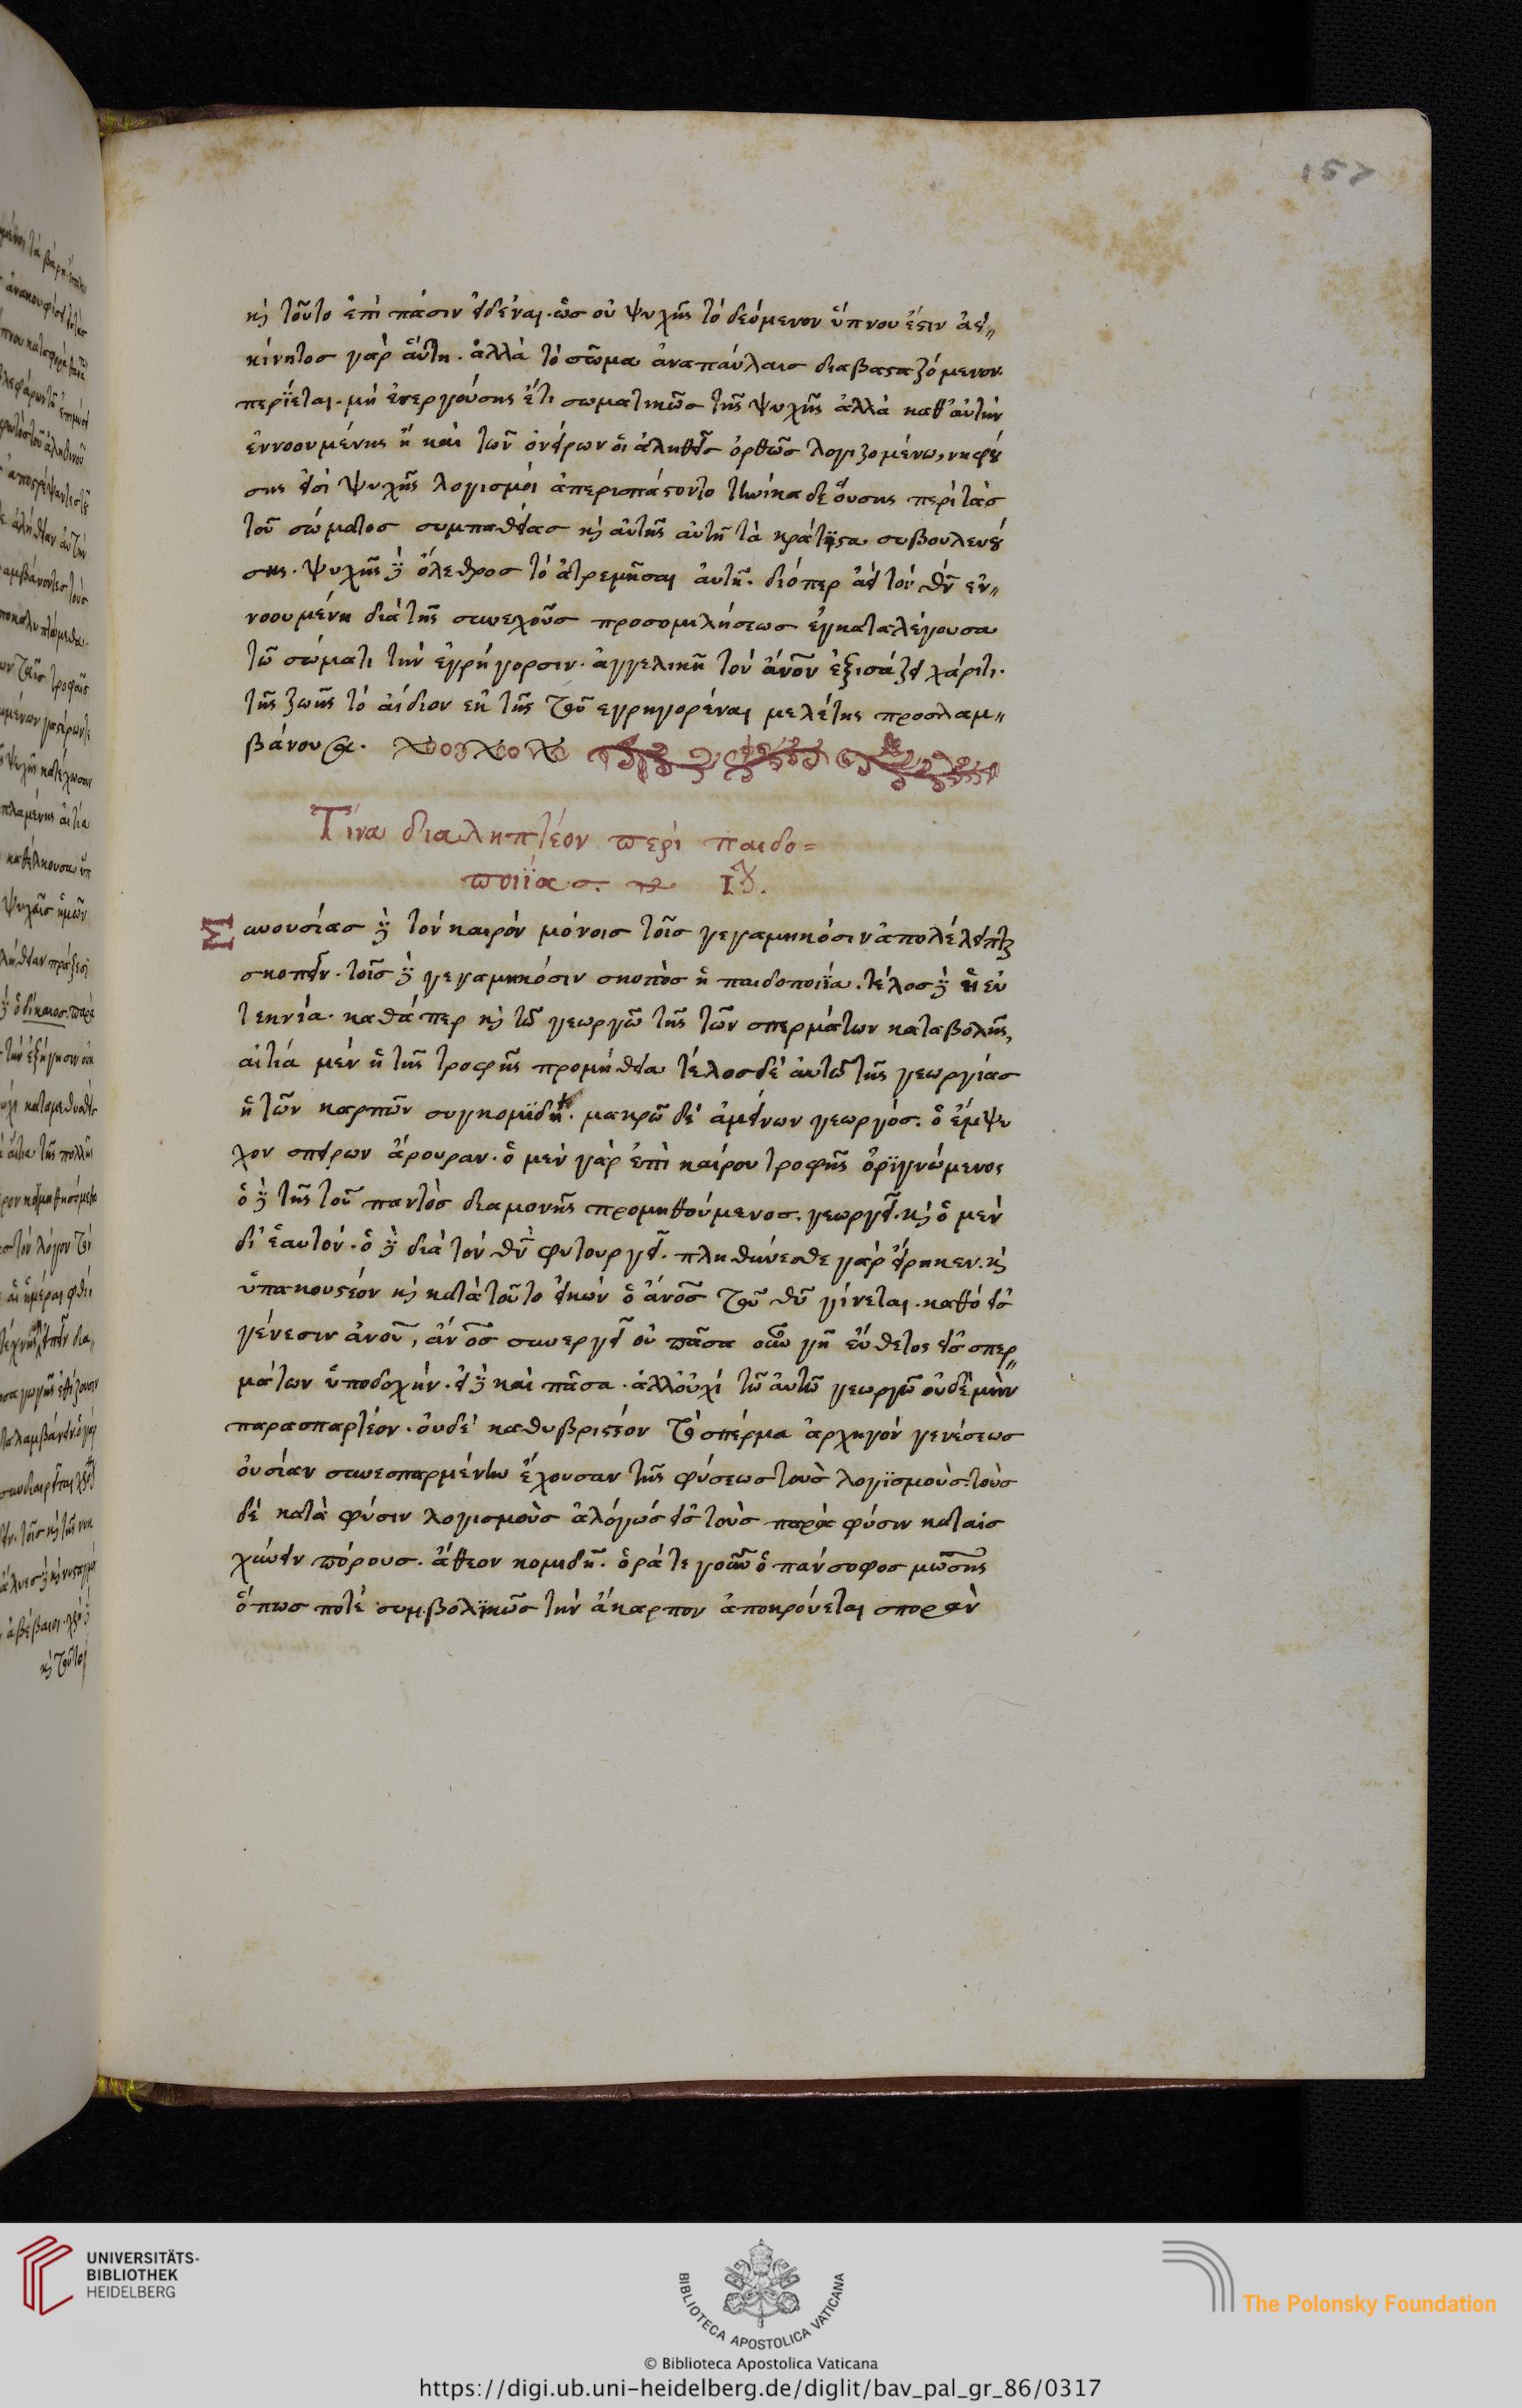 157
κὶ τοῦτο ἐπὶ πᾶσιν εἰδέναι. ὡς οὐ ψυχῆς τὸ δεόμενον ὕπνου ἐστιν ἀει
κίνητος γὰρ αὕτη. ἀλλὰ τὸ σῶμα ἀναπαύλαις διαβασταζόμενον.
περΐεται. μὴ ἐνεργούσης ἔτι σωματικῶς τῆς ψυχῆς ἀλλὰ καθ' αὑτὴν
ἐννοουμένης ἢ καὶ τῶν ὀνείρων οἱ ἀληθεῖς ὀρθῶς λογιζομένω, νηφού
σης εἰσὶ ψυχῆς λογισμοὶ ἀπερισπάστου τὸ τηνίκα δὲ οὔσης περὶ τὰς
τοῦ σώματος συμπαθείας κὶ αὐτῆς αὐτῆ τὰ κράτιστα συβουλευού
σης. ψυχῆς δὲ ὄλεθρος τὸ ἀτρεμῆσαι αὐτῆ. διόπερ ἀεὶ τὸν θν̄ ἐν
νοουμένη διὰ τῆς συνεχοῦς προσομιλήσεως ἐγκαταλέγουσα
τῶ σώματι τὴν ἐγρήγορσιν. ἀγγελικῆ τὸν ἄνον̄ ἐξισάζει χάριτι.
τῆς ζωῆς τὸ ἀίδιον ἐκ τῆς τοῦ ἐγρηγορέναι μελέτης προσλαμ
βάνουσα.
Τίνα διαληπτέον περὶ παιδο=
ποιΐας.
Συνουσίας δὲ τὸν καιρὸν μόνοις τοῖς γεγαμηκόσιν ἀπολέλειπται
σκοπεῖν. τοῖς δὲ γεγαμηκόσιν σκοπὸς ἡ παιδοποιΐα. τέλος δὲ ἡ εὐ
τεκνία. καθάπερ κὶ τῶ γεωργῶ τῆς τῶν σπερμάτων καταβολῆς,
αἰτία μὲν ἡ τῆς τροφῆς προμήθεια τέλος δὲ αὐτῶ τῆς γεωργίας
ἡ τῶν καρπῶν συγκομϊδή. μακρῶ δὲ ἀμείνων γεωργός. ὁ ἔμψυ
χον σπείρων ἄρουραν. ὁ μὲν γὰρ ἐπὶ καίρου τροφῆς ὀρϊγνώμενος
ὁ δὲ τῆς τοῦ παντὸς διαμονῆς προμηθούμενος. γεωργεῖ. κὶ ὁ μὲν
δι' ἑαυτόν. ὁ δὲ διὰ τὸν θν̄ φυτουργεῖ. πληθύνεσθε γὰρ εἴρηκεν. κὶ
ὑπακουστέον κὶ κατὰ τοῦτο εἰκὼν ὁ ἄνος̄ τοῦ θῡ γίνεται. καθὸ εἰς
γένεσιν ἀνοῡ, ἄνος̄ συνεργεῖ οὐ πᾶσα οὖν γῆ εὔθετος εἰς σπερ
μάτων ὑποδοχήν. εἰ δὲ καὶ πᾶσα. ἀλλ' οὐχὶ τῶ αὐτῶ γεωργῶ οὐδὲ μὴν
παρασπαρτέον. οὐδὲ καθυβριστέον τὸ σπέρμα ἀρχηγὸν γενέσεως
οὐσίαν συνεσπαρμένην ἔχουσαν τῆς φύσεως τοὺς λογϊσμοὺς. τοὺς
δὲ κατὰ φύσιν λογισμοὺς ἀλόγως εἰς τοὺς παρὰ φύσιν καταισ
χύνειν πόρους. ἄθεον κομιδῆ. ὁρᾶτε γοῦν ὁ πάνσοφος μωσῆς
ὅπως ποτὲ συμβολϊκῶς τὴν ἄκαρπον ἀποκρούεται σπορὰν
UNIVERSITÄTS-
BIBLIOTHEK
HEIDELBERG
BIBLIOTECA APOSTOLICA VATICANA
The Polonsky Foundation
© Biblioteca Apostolica Vaticana
https://digi.ub.uni-heidelberg.de/diglit/bav_pal_gr_86/0317